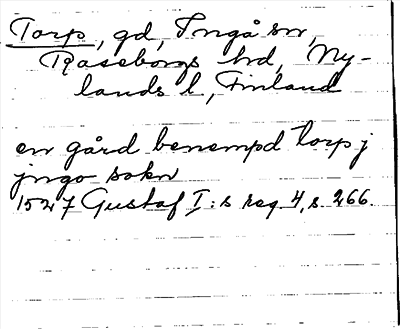 Torp, gd, Ingå sn,
Raseborgs hd, Ny-
lands l, Finland
en gård benempd torp j
jngo sokn
1527 Gustaf I:s reg 4, s 266.